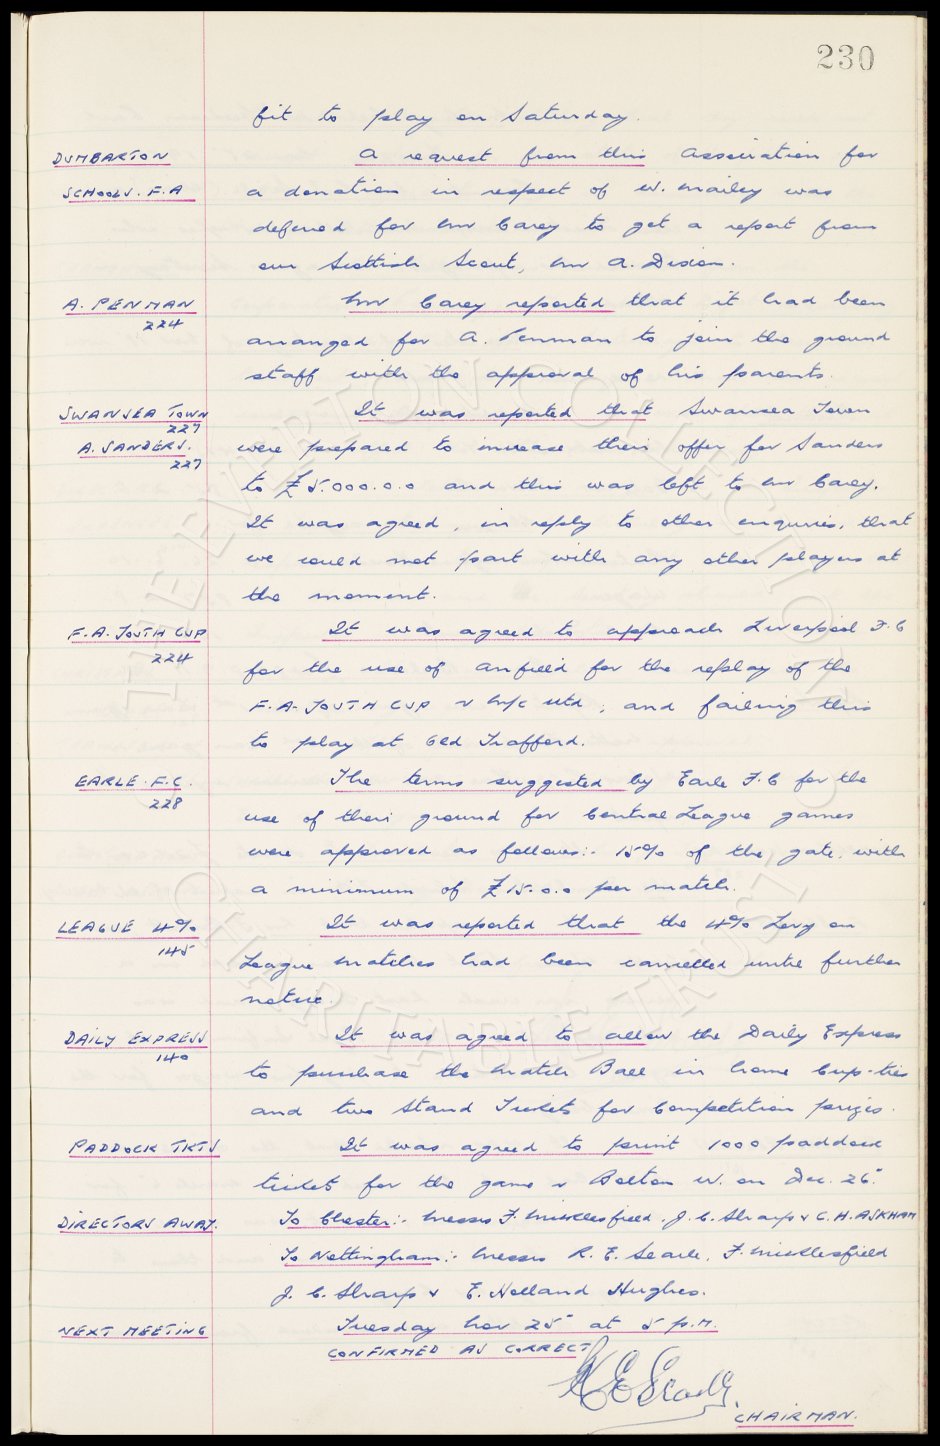 230
fit to play on Saturday.
DUMBARTON A request from this Association for
SCHOOLS. F.A a donation in respect of W. Mailey was
deferred for Mr Carey to get a report from
our Scottish Scout, Mr A. Dixon.
A. PENMAN Mr Carey reported that it had been
224 arranged for A. Penman to join the ground
staff with the approval of his parents.
SWANSEA TOWN It was reported that Swansea Town
227
A. SANDERS. were prepared to increase their offer for Sanders
227
to £5.000.0.0 and this was left to Mr Carey.
It was agreed, in reply to other enquiries, that
we could not part with any other players at
the moment.
F.A. YOUTH CUP It was agreed to approach Liverpool F.C
224 for the use of Anfield for the replay of the
F.A. YOUTH CUP v M/c Utd, and failing this
to play at Old Trafford.
EARLE. F.C. The terms suggested by Earle F.C for the
228 use of their ground for Central League games
were approved as follows:- 15% of the gate, with
a minimum of £15.0.0 per match.
LEAGUE 4% It was reported that the 4% Levy on
145 League matches had been cancelled until further
notice.
DAILY EXPRESS It was agreed to allow the Daily Express
140 to purchase the Match Ball in home Cup-ties
and two Stand Tickets for Competition prizes.
PADDOCK TKTS It was agreed to print 1000 paddock
tickets for the game v Bolton W. on Dec. 26"
DIRECTORS AWAY. To Chester:- Messrs F. Micklesfield, J.C. Sharp & C.H. ASKHAM
To Nottingham:- Messrs R.E. Searle, F. Micklesfield
J.C. Sharp & E. Holland Hughes.
NEXT MEETING Tuesday Nov 25" at 5 p.m.
CONFIRMED AS CORRECT
CHAIRMAN.
THE EVERTON COLLECTION
CHARITABLE TRUST